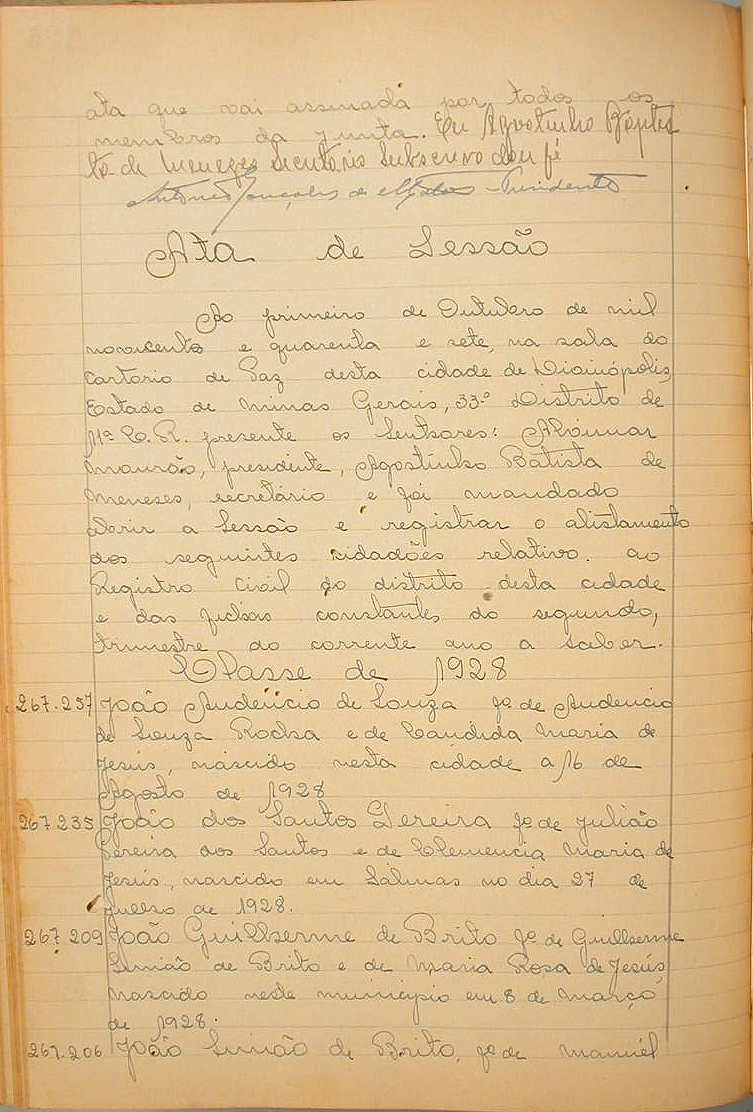 ata que vai assinada por todos os
membros da junta. Eu Agostinho Baptis
ta de Menezes secretario subscrevo dou fé
Antonio Gonçalves de Presidente
Ata de Sessão
Ao primeiro de Outubro de mil
novecentos e quarenta e sete, na sala do
Cartorio de Paz desta cidade de
Estado de Minas Gerais, 33º Distrito de
11ª C.R. presente os Senhores: Alvimar
Mourão, presidente, Agostinho Batista de
Meneses, secretário e foi mandado
abrir a Sessão e registrar o alistamento
dos seguintes cidadões relativo. ao
Registro Civil do distrito desta cidade
e das fichas constantes do segundo,
trimestre do corrente ano a saber.
Classe de 1928
267.257 João Audencio de Souza fº de Audencio
de Souza Rocha e de Candida Maria de
Jesús, náscido nesta cidade a 16 de
Agosto de 1928
267.235 João dos Santos Pereira fº de Julião
Pereira dos Santos e de Clemencia Maria de
Jesús, nascido em Salinas no dia 27 de
Julho de 1928.
267.209 João Guilherme de Brito fº de Guilherme
Simião de Brito e de Maria Rosa de Jesús,
Nascido neste municipio em 8 de Março
de 1928.
267.206 João Simião de Brito, fº de Manuél